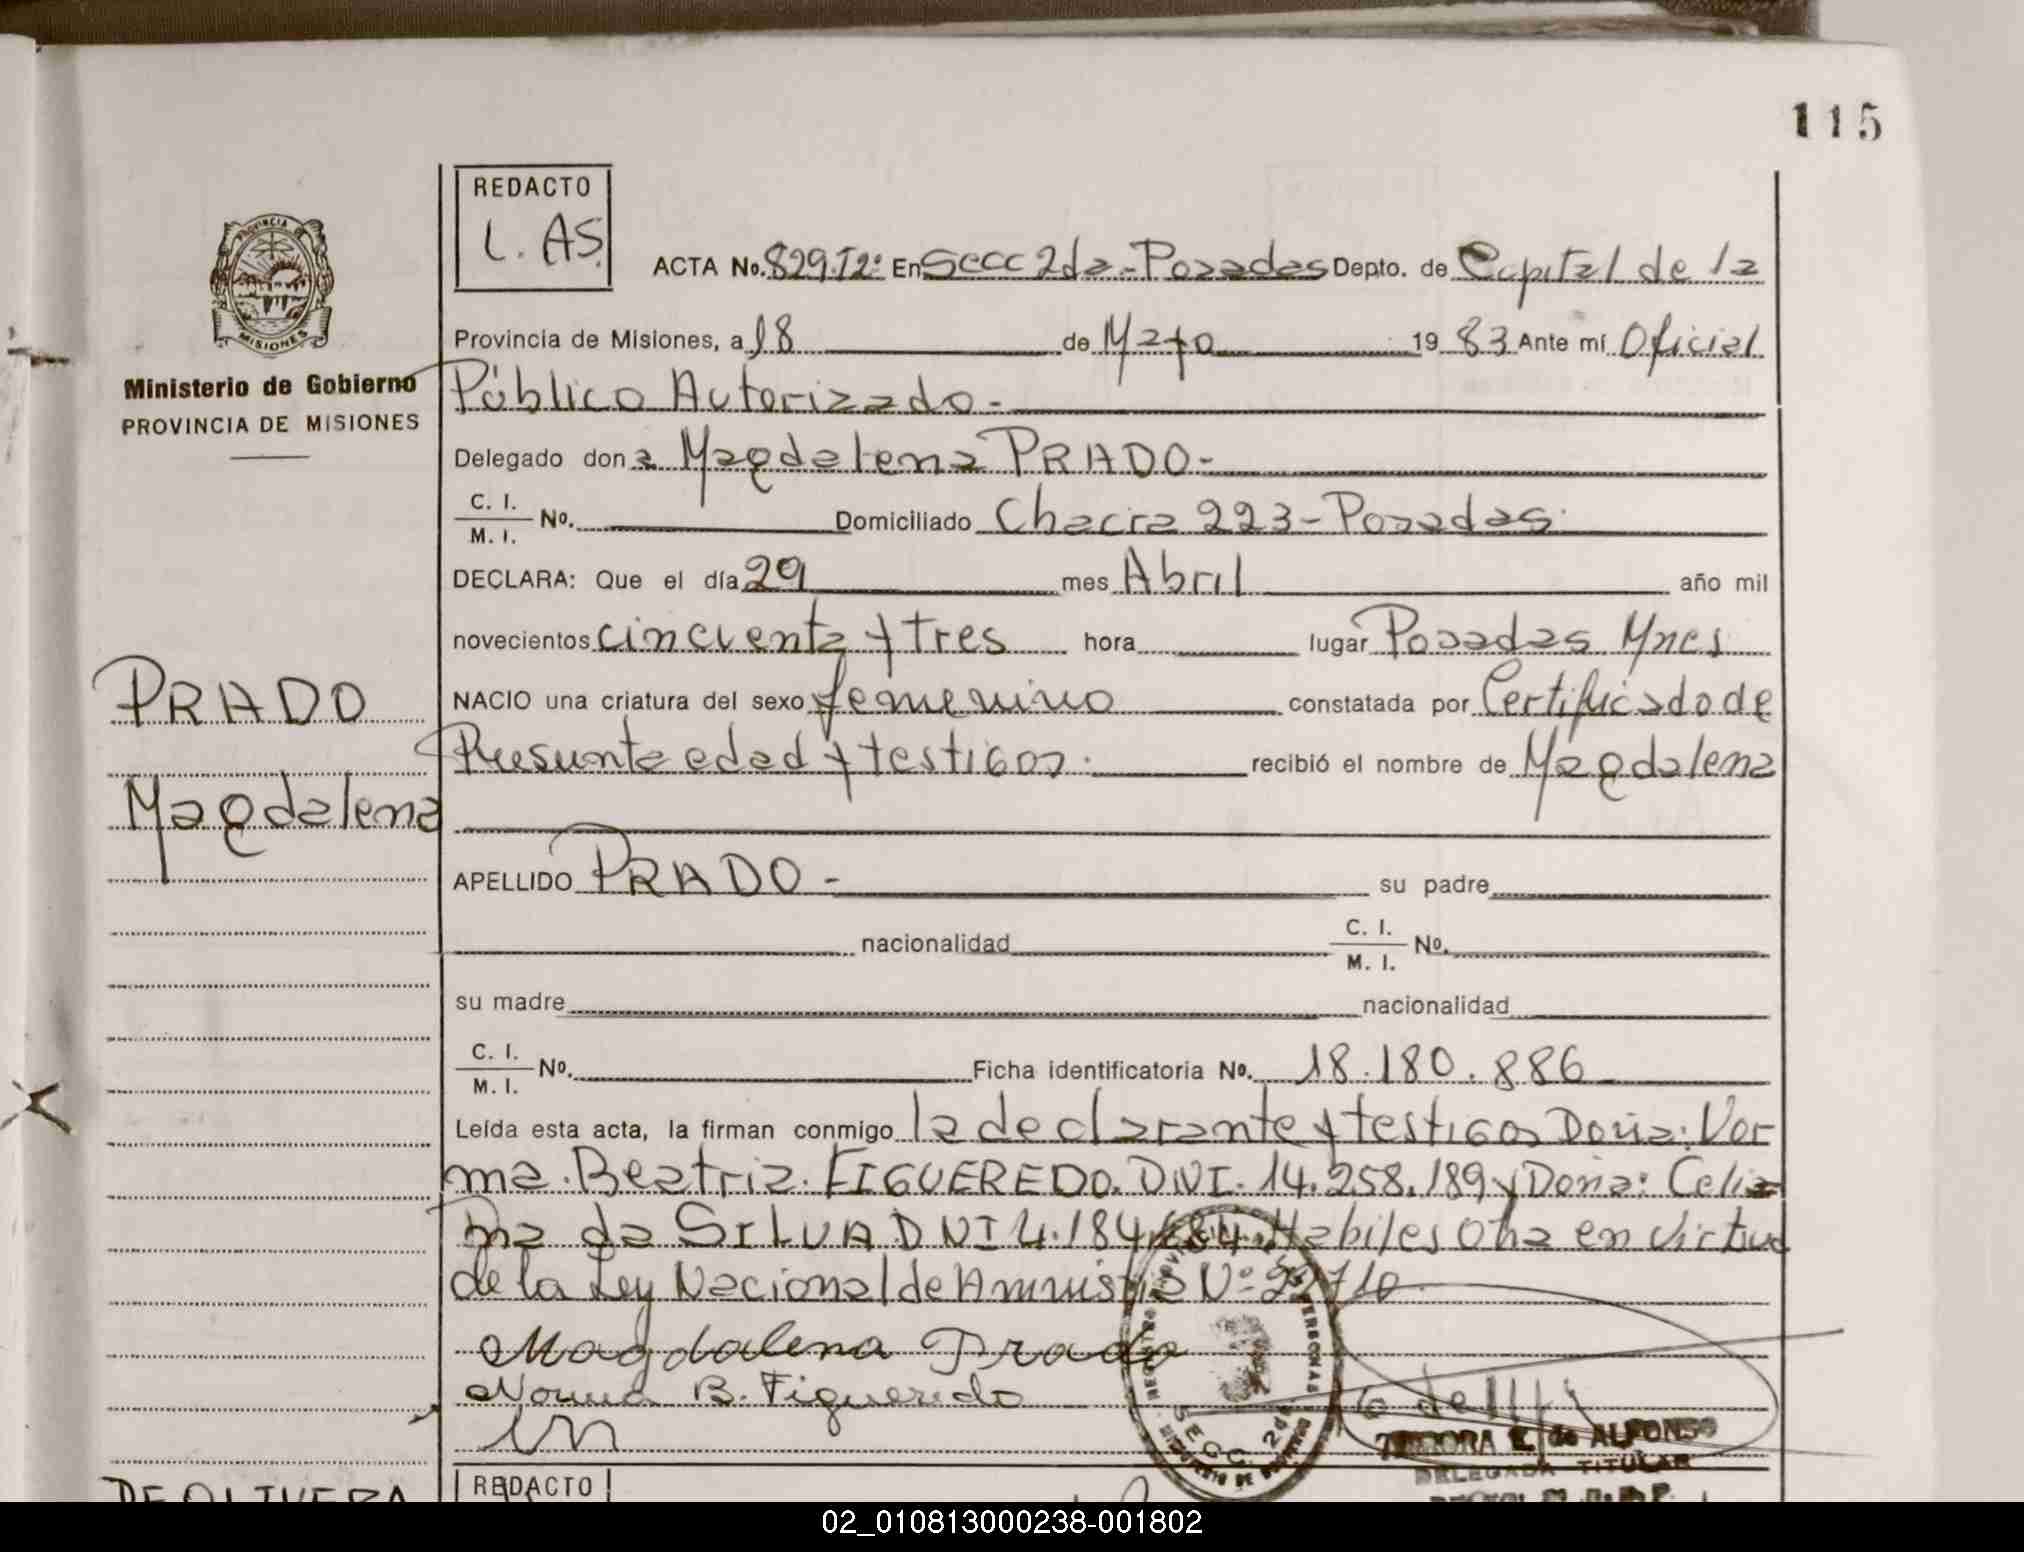 115
REDACTO
L. AS.
PROVINCIA DE
MISIONES
ACTA No. 829.T2º En Secc 2da - Posadas Depto. de Capital de la
Provincia de Misiones, a 18 de Mayo 19 83 Ante mí Oficial
Ministerio de Gobierno
PROVINCIA DE MISIONES
Público Autorizado.-
Delegado don a Magdalena PRADO-
C. I.
M. I. No. Domiciliado Chacra 223-Posadas.
DECLARA: Que el día 29 mes Abril año mil
novecientos cincuenta y tres hora lugar Posadas Mnes
NACIO una criatura del sexo femenino constatada por Certificado de
Presunta edad y testigos. recibió el nombre de Magdalena
PRADO
Magdalena
APELLIDO PRADO - su padre
nacionalidad C. I.
M. I. No.
su madre nacionalidad
C. I.
M. I. No. Ficha identificatoria No. 18.180.886
Leída esta acta, la firman conmigo la declarante y testigos Doña: Nor
ma. Beatriz. FIGUEREDO. DNI. 14.258.189 y Doña: Celia
da SILVA DNI 4.184.684 Habiles en virtud
de la Ley Nacional de Amnistia Nº 22710
Magdalena Prado
Norma B. Figueredo
SECC. 2da
PERSONAS
E. de ALFONSO
DELEGADA TITULAR
REDACTO
DE OLIVERA
02_010813000238-001802